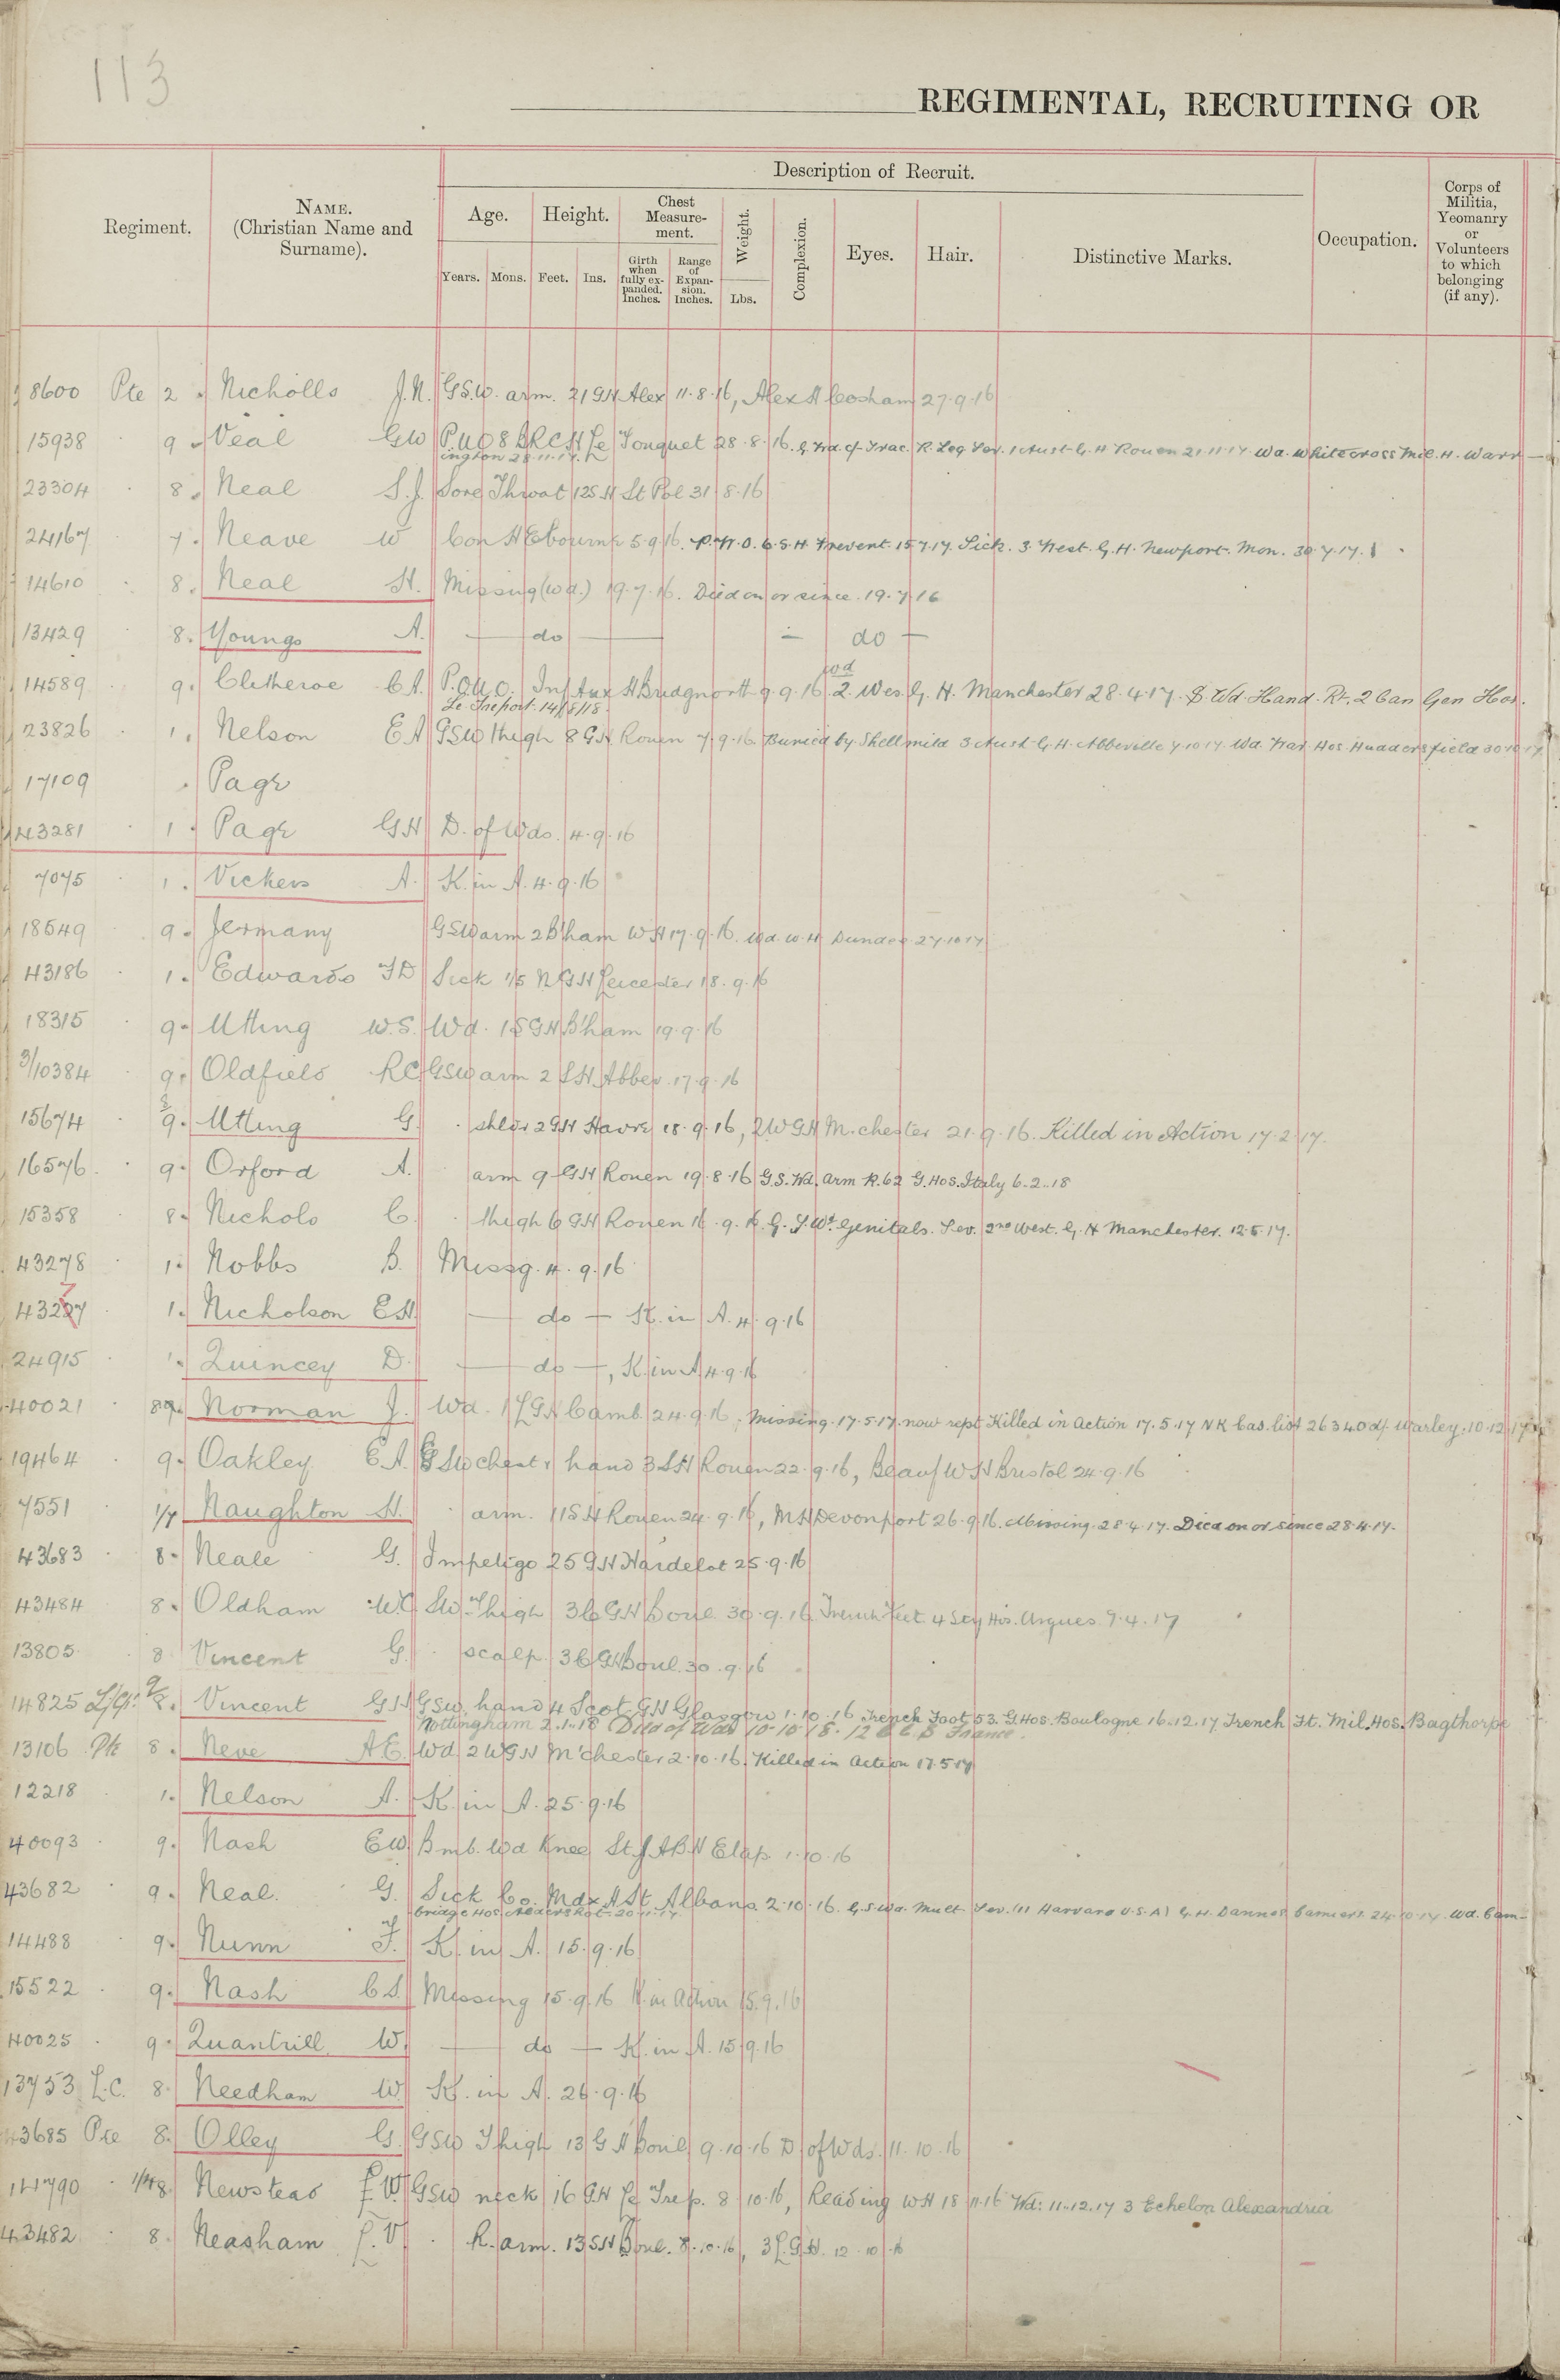 113
REGIMENTAL, RECRUITING OR
Description of Recruit.
Regiment.
NAME.
(Christian Name and
Surname).
Age.
Height.
Chest
Measure-
ment.
Weight.
Complexion.
Eyes.
Hair.
Distinctive Marks.
Occupation.
Corps of
Militia,
Yeomanry
or
Volunteers
to which
belonging
(if any).
Years.
Mons.
Feet.
Ins.
Girth
when
fully ex-
panded.
Inches.
Range
of
Expan-
sion.
Inches.
Lbs.
8600 Pte 2 Nicholls J.N. G.S.W. arm. 21 GH Alex 11.8.16, Alex H Cosham 27.9.16
15938 9 Veal GW P.U.O 8 BRCH Le Touquet 28.8.16. Leg Sev. 1 Aust. G.H Rouen 21.11.17 Wd. Whitecross Mil. H. Warr-
ington 28.11.17.
23304 8. Neal S.J. Sore Throat 12 SH St Pol 31.8.16
24167 7. Neave W Con H Ebourne 5.9.16. P.N.O. 6.S.H. Frevent. 15.7.17. Sick. 3. West. G.H. Newport. Mon. 30.7.17.
14610 8. Neal H. Missing (wd.) 19.7.16. Died on or since 19.7.16
13429 8. Youngs A. — do — — do —
14589 9. Cletheroe C A. P.U.O. Inf Aux H Bridgnorth 9.9.16 wd 2. Wes. G. H. Manchester 28.4.17. Wd. Hand. Rt. 2 Can Gen Hos.
Le Treport 14/8/18.
23826 1. Nelson E A GSW thigh 8 GH Rouen 7.9.16. Buried by Shell mild 3 Aust G.H. Abbeville 7.10.17. Wd. War Hos. Huddersfield 30.10.17
17109 Page
43281 1. Page GH D. of Wds. 4.9.16
7075 1. Vickers A. K. in A. 4.9.16
18549 9. Jermany GSW arm 2 B'ham WH 17.9.16. Wd. W.H Dundee 27.10.17
43186 1. Edwards FD Sick 1/5 NGH Leicester 18.9.16
18315 9. Utting W.S. Wd. 1 SGH B'ham 19.9.16
3/10384 9. Oldfield RC GSW arm 2 SH Abbev. 17.9.16
15674 9. Utting G. shldr 2 GH Havre 18.9.16, 2WGH M.chester 21.9.16. Killed in Action 17.2.17.
16576 9. Orford A. arm 9 GH Rouen 19.8.16 G.S. Wd. Arm R. 62 G. Hos. Italy 6.2.18
15358 8. Nichols C. thigh 6 GH Rouen 16.9.16. G.S. Wd. Genitals. Sev. 2nd West. G.H Manchester. 12.5.17.
43278 1. Nobbs B. Missg. 4.9.16
43277 1. Nicholson E.H. — do — K. in A. 4.9.16
24915 1. Quincey D. — do —, K. in A 4.9.16
40021 8 9. Norman J. Wd. 1 EGH Camb. 24.9.16. Missing. 17.5.17. now rept Killed in Action 17.5.17 NK Cas. list 26340 d/. Warley. 10.12.17
19464 9. Oakley E A. GSW chest & hand 3 SH Rouen 22.9.16, Beauf WH Bristol 24.9.16
7551 1/7 Naughton H. arm. 11 SH Rouen 24.9.16, MH Devonport 26.9.16. Missing. 28.4.17. Died on or since 28.4.17.
43683 8. Neale G. Impetigo 25 GH Hardelot 25.9.16
43484 8. Oldham W.C SW Thigh 36 GH Boul 30.9.16 Trench Feet 4 Sty Hos. Arques 9.4.17
13805 8 Vincent G. scalp 36 GH Boul. 30.9.16
14825 L/Cpl. 9/8. Vincent GH GSW. hand 4 Scot. GH Glasgow 1.10.16 Trench Foot 53. G. Hos. Boulogne 16.12.17 Trench Ft. Mil. Hos. Bagthorpe
Nottingham 2.1.18 Died of Wds 10.10.18. France.
13106 Pte 8. Neve A E. Wd 2 WGH M'chester 2.10.16. Killed in Action 17.5.17
12218 1. Nelson A. K. in A. 25.9.16
40093 9. Nash E.W. Bmb. Wd Knee St J ABH Etap. 1.10.16
43682 9. Neal. G. Sick Co. Mdx H St Albans 2.10.16. G.S. Wd. Mult Sev. (11 Harvard U.S.A) G.H. Dannes Camiers. 24.10.17. Wd. Cam-
bridge Hos. Aldershot. 20.11.17
14488 9. Nunn F. K. in A. 15.9.16
15522 9. Nash C S. Missing 15.9.16 K. in Action 15.9.16
40025 9. Quantrill W. — do — K. in A. 15.9.16
13753 L.C. 8. Needham W. K. in A. 26.9.16
43685 Pte 8. Olley G. GSW Thigh 13 G H Boul 9.10.16 D of Wds. 11.10.16
14790 8 Newstead F.W. GSW neck 16 GH Le Trep. 8.10.16, Reading WH 18.11.16 Wd: 11.12.17 3 Echelon Alexandria
43482 8. Neasham L.V. R. arm. 13 SH Boul. 8.10.16, 3 L.G.H. 12.10.16